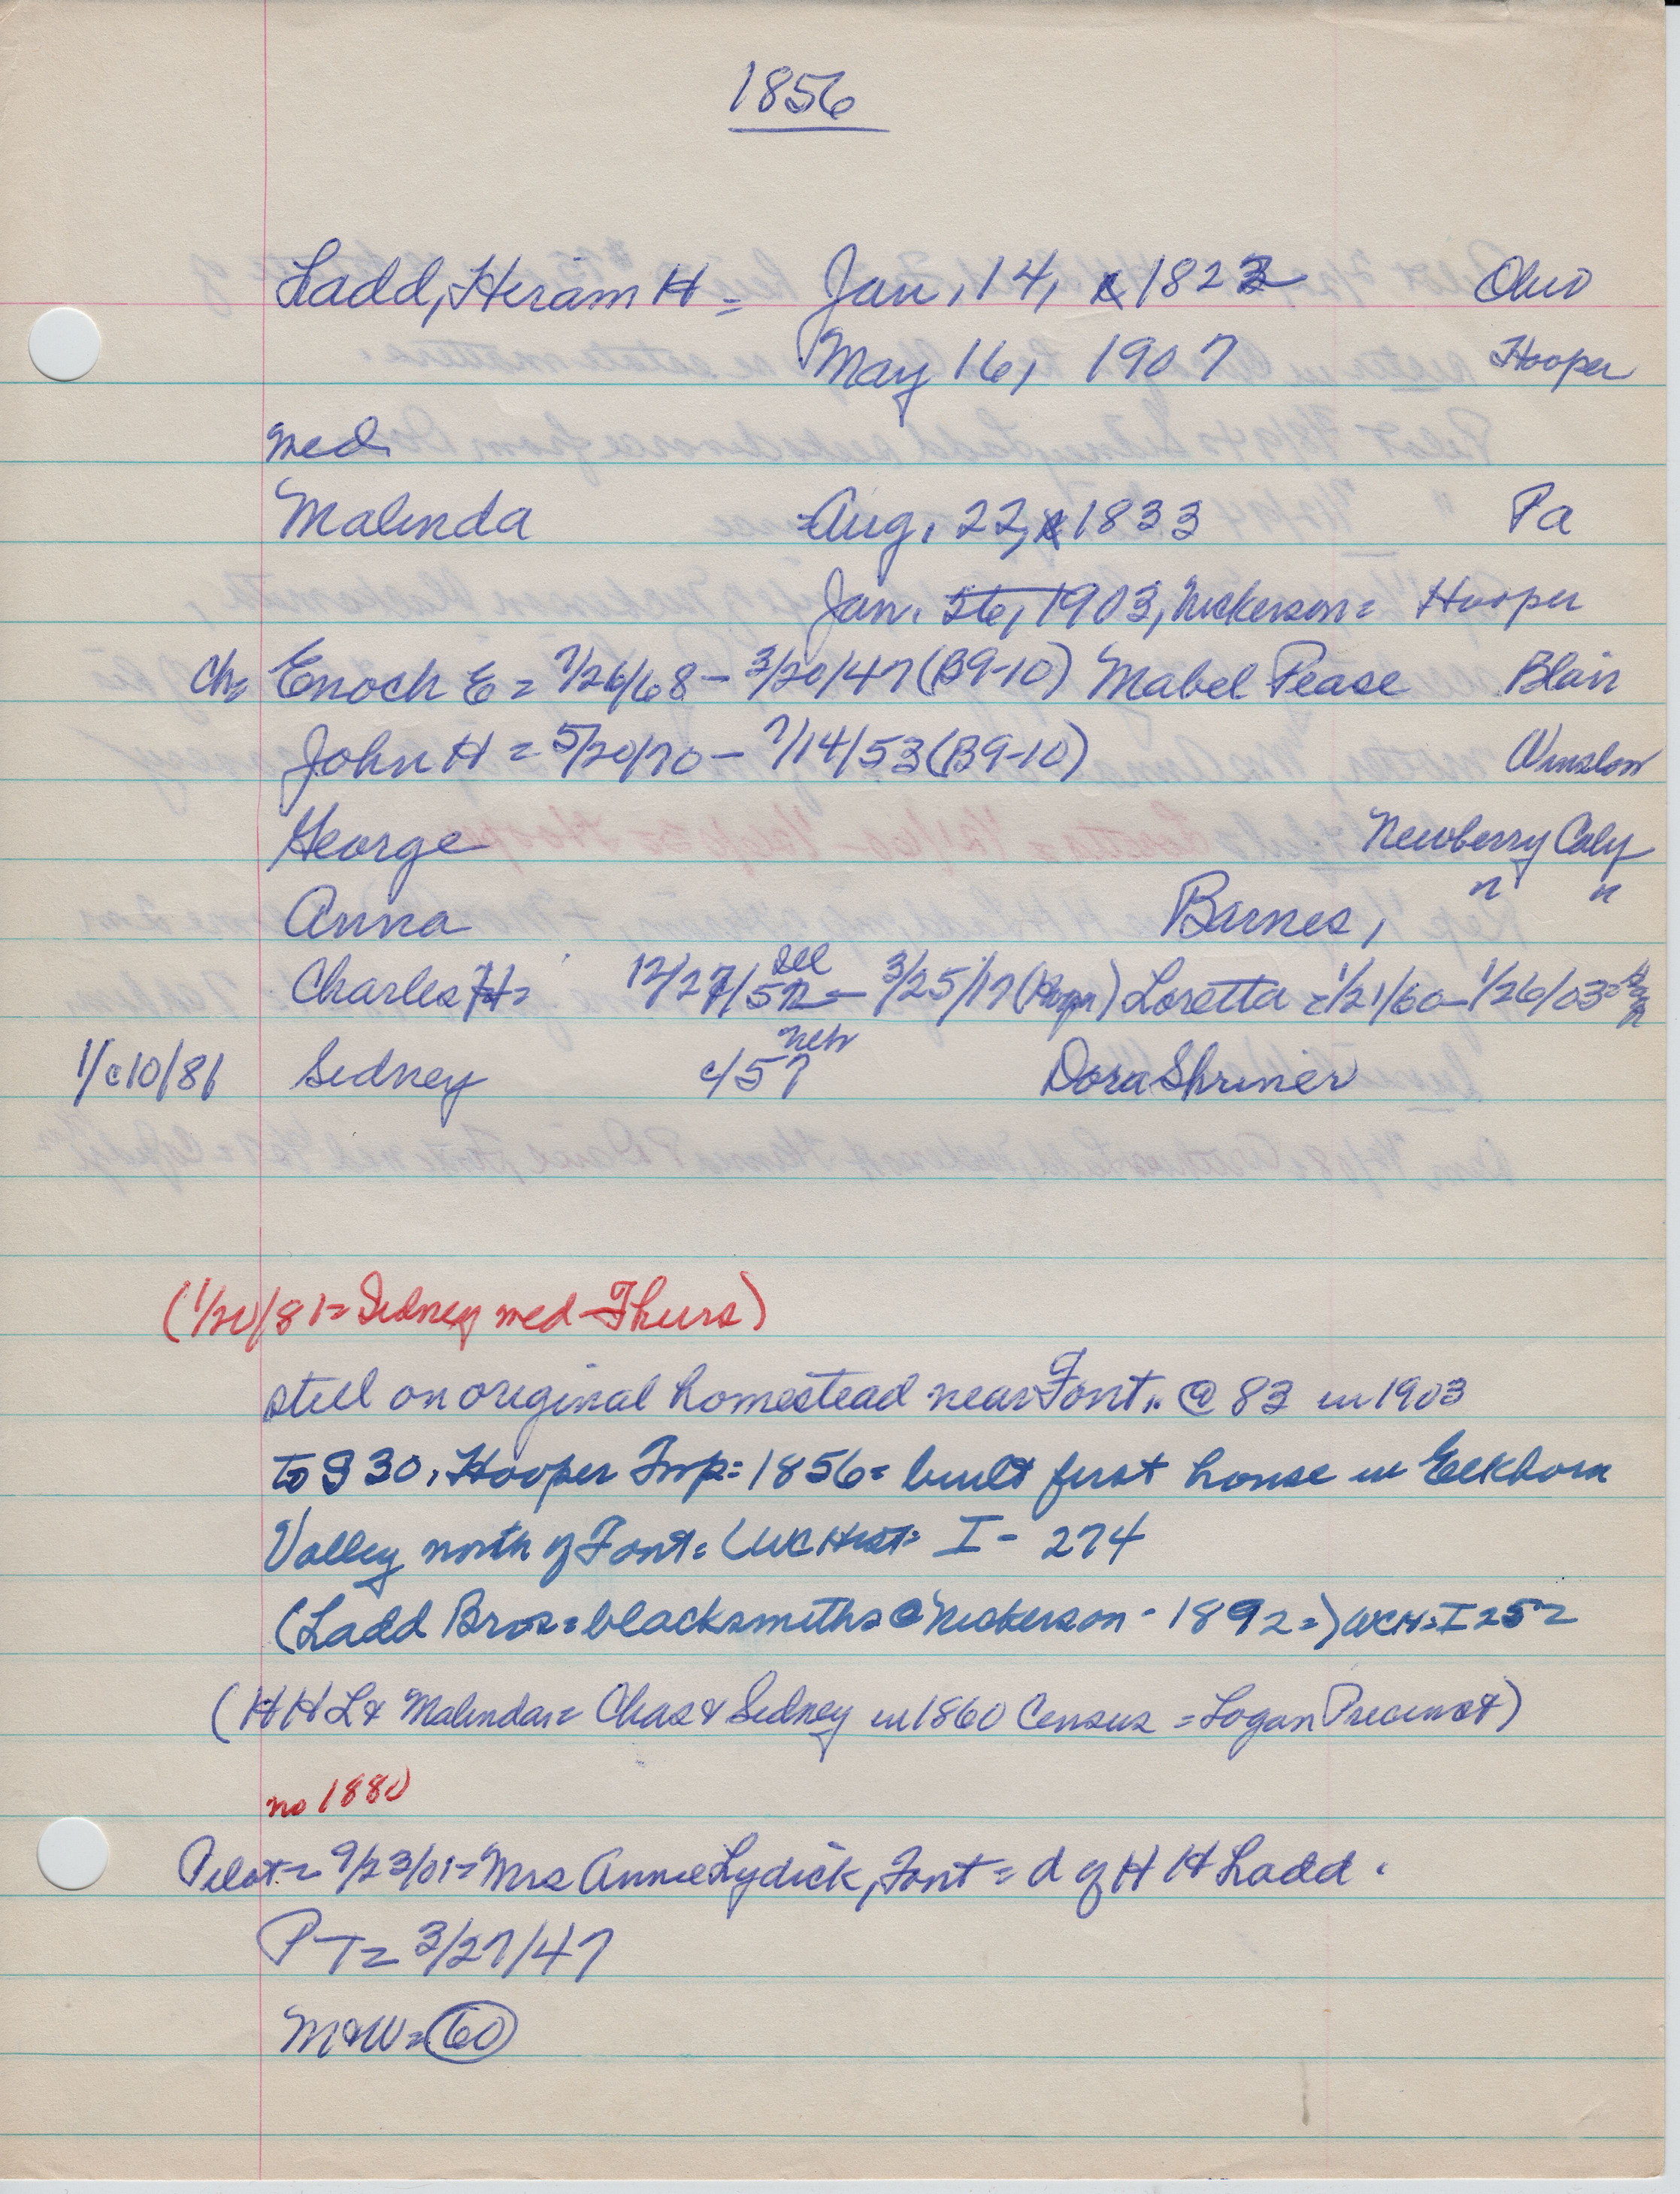 1856
Ladd, Hiram H = Jan, 14, 1822 Ohio
May 16, 1907 Hooper
med
Malinda = Aug, 22, 1833 Pa
Jan. 1903, Nickerson = Hooper
Ch= Enoch E = 7/26/68 - 3/20/47 (B9-10) Mabel Pease Blair
John H = 5/20/70 - 7/14/53 (B9-10) Winslow
George Newberry Caly
Anna Barnes, " "
Charles H = 12/27/57 - 3/25/17 Loretta = 1/21/60 - 1/26/03 =
Neb
1/c10/81 Sidney c/57 Dora Shriner
(1/20/81 = Sidney med Thurs)
still on original homestead near Font. @ 83 in 1903
to S 30, Hooper Twp = 1856 = built first house in Elkhorn
Valley north of Font = (WC Hist = I - 274
(Ladd Bros = blacksmiths @ Nickerson - 1892 =) WCH = I 252
(H H L & Malinda = Chas & Sidney in 1860 Census = Logan Precinct)
no 1880
Pilot = 9/23/01 = Mrs Annie Lydick, Font = d of H H Ladd.
PT = 3/27/47
M&W = 60